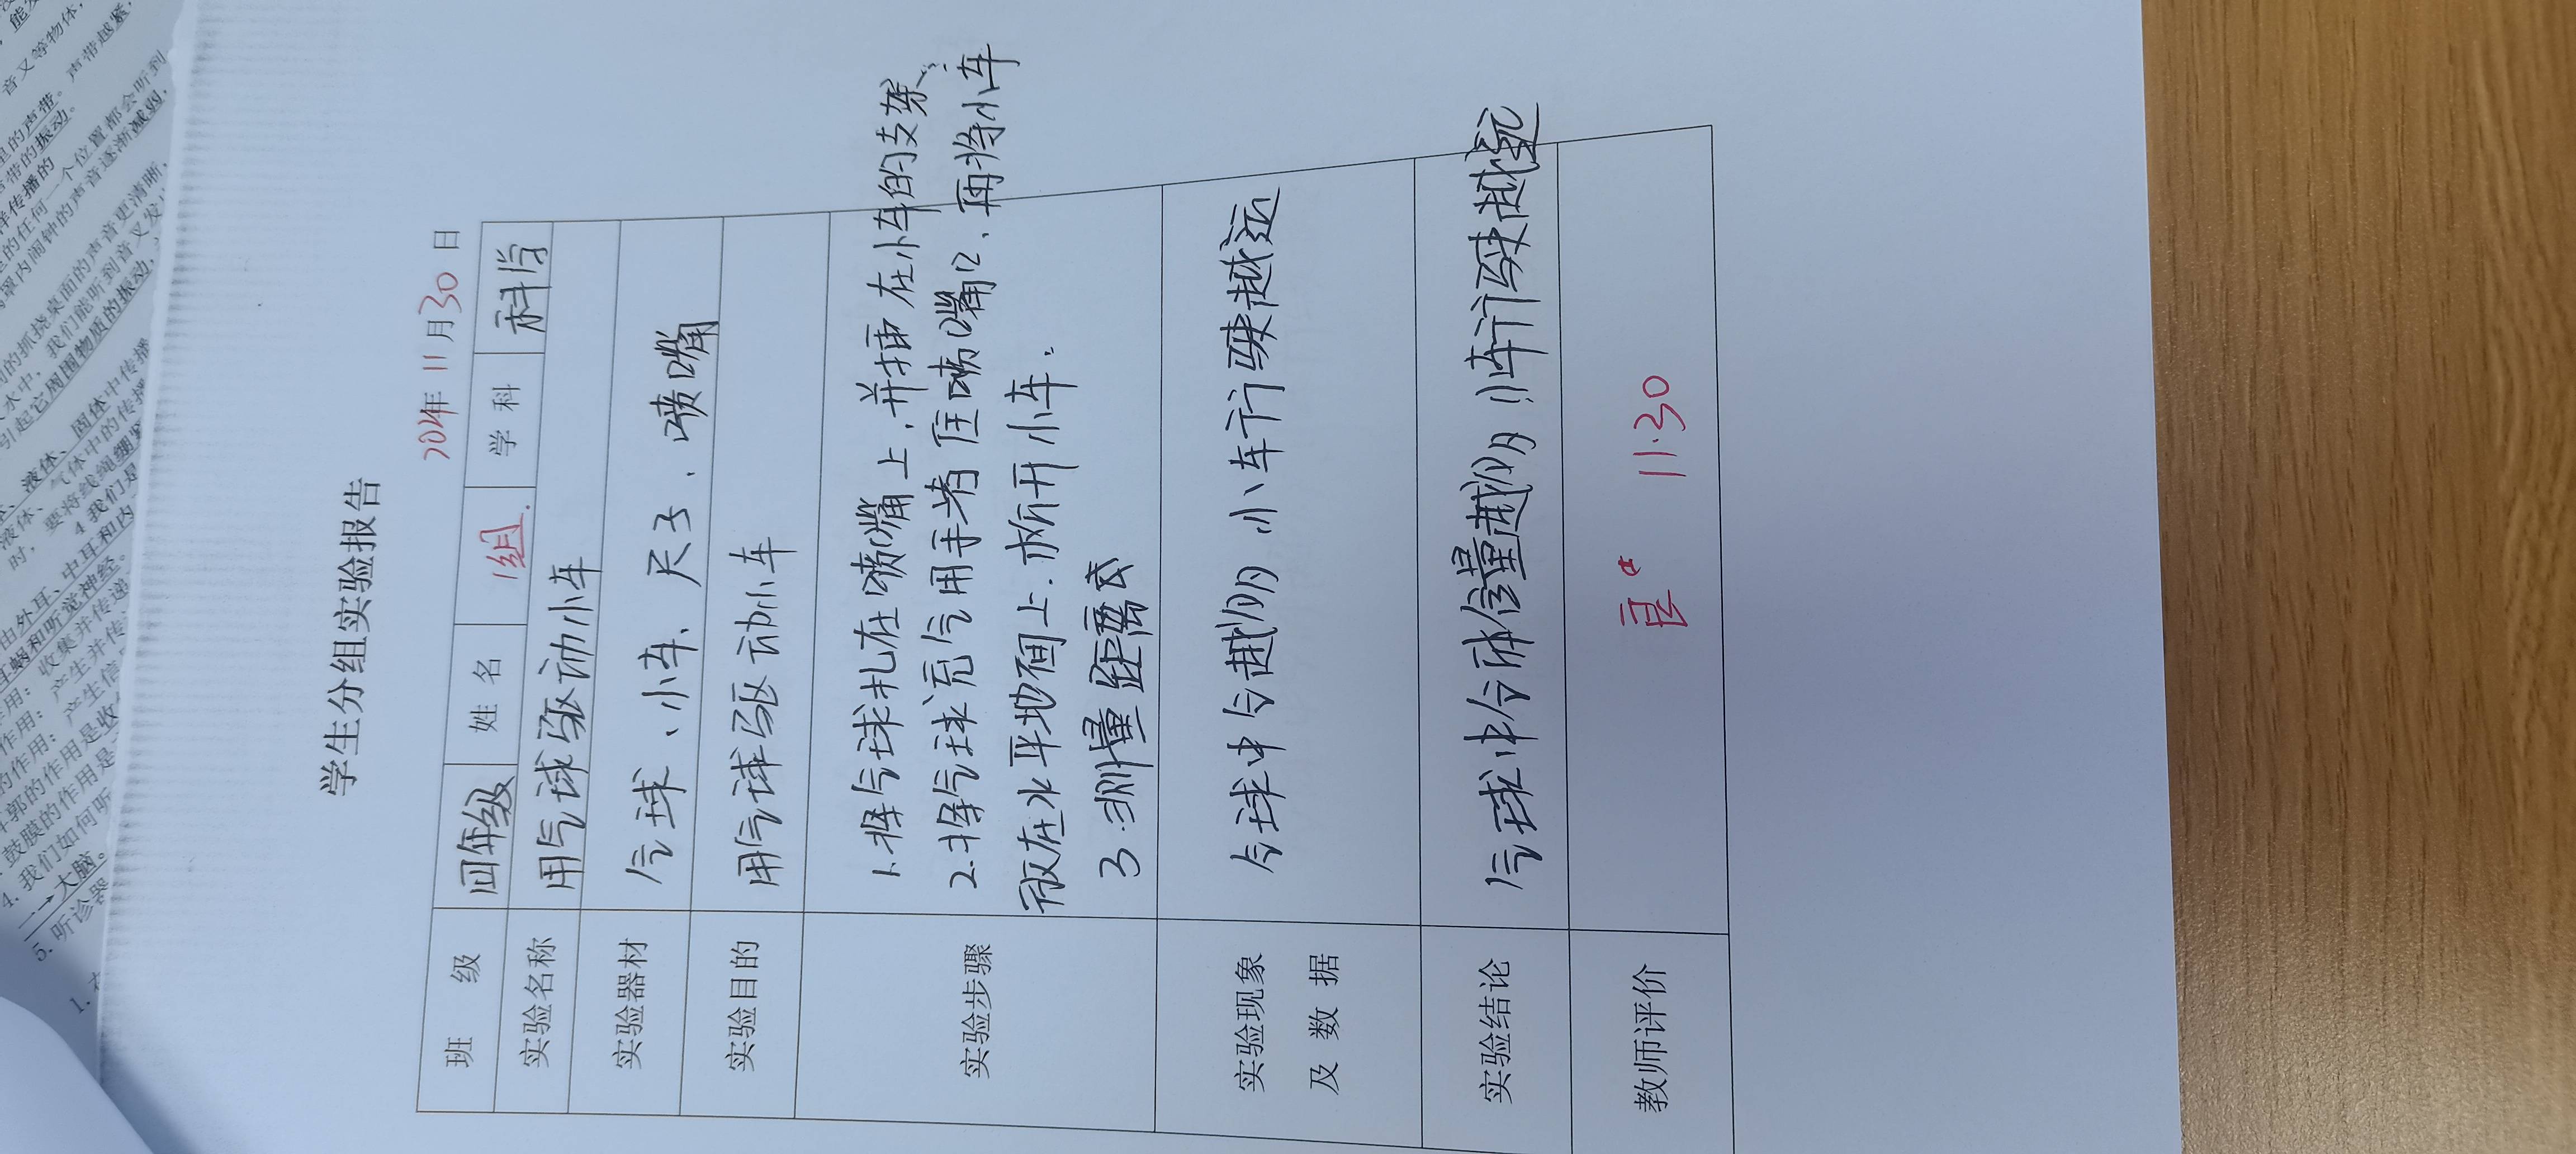 学生分组实验报告
年11月30日
班 级 四年级 姓 名 1组. 学 科 科学
实验名称 用气球驱动小车
实验器材 气球、小车、尺子、喷嘴
实验目的 用气球驱动小车
实验步骤 1.将气球扎在喷嘴上,并插在小车的支架
2.将气球充气用手堵住喷嘴口,再将小车
放在水平地面上.松开小车.
3.测量距离
实验现象
及 数 据
气球中气越多小车行驶越远
实验结论 气球中气体含量越多小车行驶越远
教师评价 11.30
音叉等物体,
声带越紧,
里的声带。
声带的振动。
样传播的
的任何一个位置都会听到
罩内闹钟的声音逐渐减弱,
的抓挠桌面的声音更清晰,
水中,我们能听到音叉发
引起它周围物质的振动,
液体、固体中传播
液体、气体中的传播
时,要将线绳绷紧
4 我们是
由外耳、中耳和内
耳蜗和听觉神经。
用:收集并传递
作用:产生并传
的作用:产生信
耳郭的作用是收
鼓膜的作用是
4. 我们如何听
→大脑。
5. 听诊器
1.